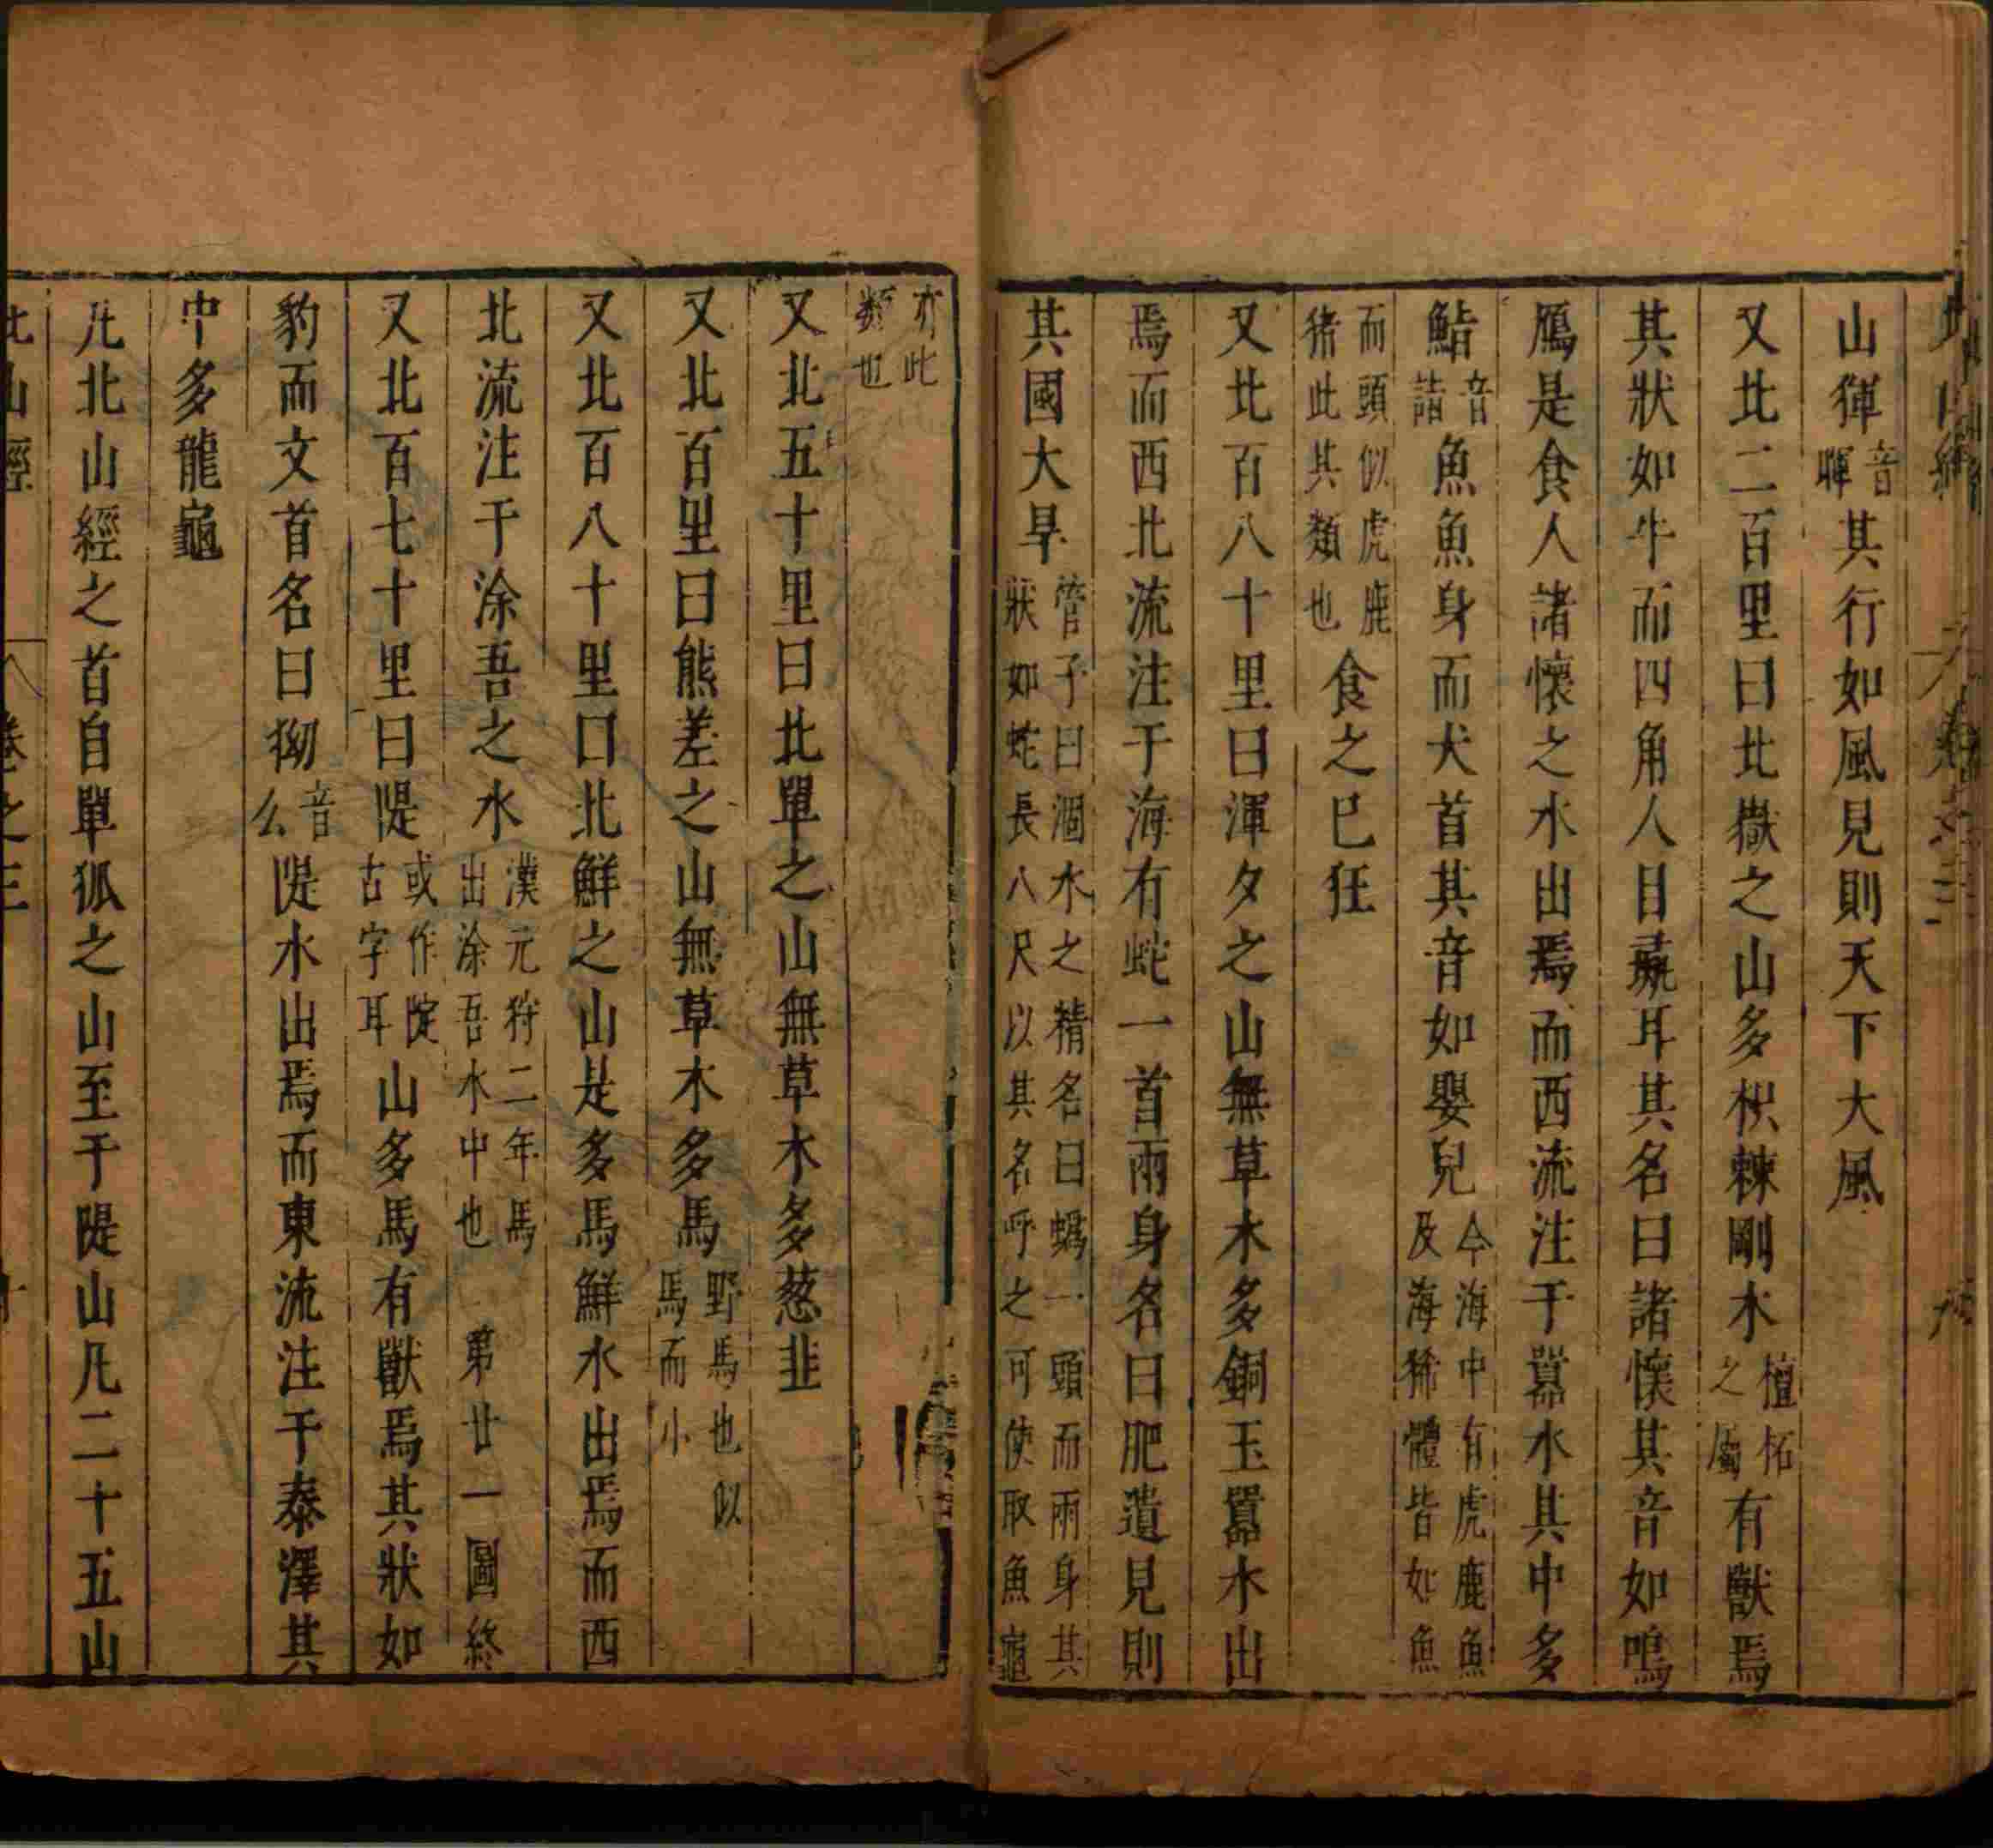 山㺒音暉其行如風見則天下大風
又北二百里曰北嶽之山多枳棘剛木檀柘之屬有獸焉
其狀如牛而四角人目彘耳其名曰諸懷其音如鳴
鴈是食人諸懷之水出焉而西流注于囂水其中多
鮨音詣魚魚身而犬首其音如嬰兒今海中有虎鹿魚及海狶體皆如魚
而頭似虎鹿猪此其類也食之已狂
又北百八十里曰渾夕之山無草木多銅玉囂水出
焉而西北流注于海有蛇一首兩身名曰肥遺見則
其國大旱管子曰涸水之精名曰蟡一頭而兩身其狀如蛇長八尺以其名呼之可使取魚龜
亦此類也
又北五十里曰北單之山無草木多葱韭
又北百里曰熊差之山無草木多馬野馬也似馬而小
又北百八十里曰北鮮之山是多馬鮮水出焉而西
北流注于涂吾之水漢元狩二年馬出涂吾水中也 第廿一圖終
又北百七十里曰隄或作㝎古字耳山多馬有獸焉其狀如
豹而文首名曰狕音么隄水出焉而東流注于泰澤其
中多龍龜
凡北山經之首自單狐之山至于隄山凡二十五山
北山經 卷之三